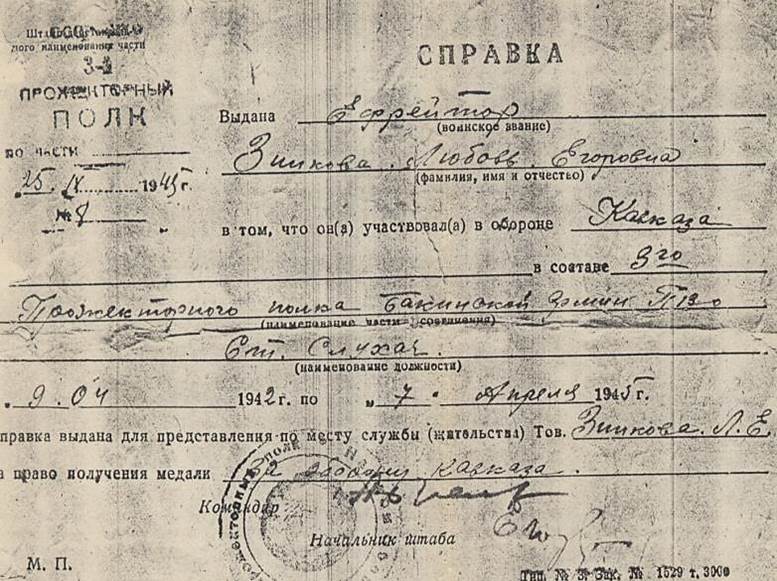 СПРАВКА
3-й
ПРОЖЕКТОРНЫЙ
ПОЛК
по части
25. IV 1945г.
№ 8
Выдана Ефрейтор
(воинское звание)
Зинкова Любовь Егоровна
(фамилия, имя и отчество)
в том, что он(а) участвовал(а) в обороне Кавказа
в составе 3го
Прожекторного полка Бакинской Армии ПВО
(наименование части соединения)
Ст. Слухач.
(наименование должности)
9.04 1942г. по „7" Апреля 1945г.
правка выдана для представления по месту службы (жительства) Тов. Зинкова Л.Е.
а право получения медали За оборону Кавказа.
Командир
Начальник штаба
М. П.
Тип. № 3. Зак. № 1529 т. 3000